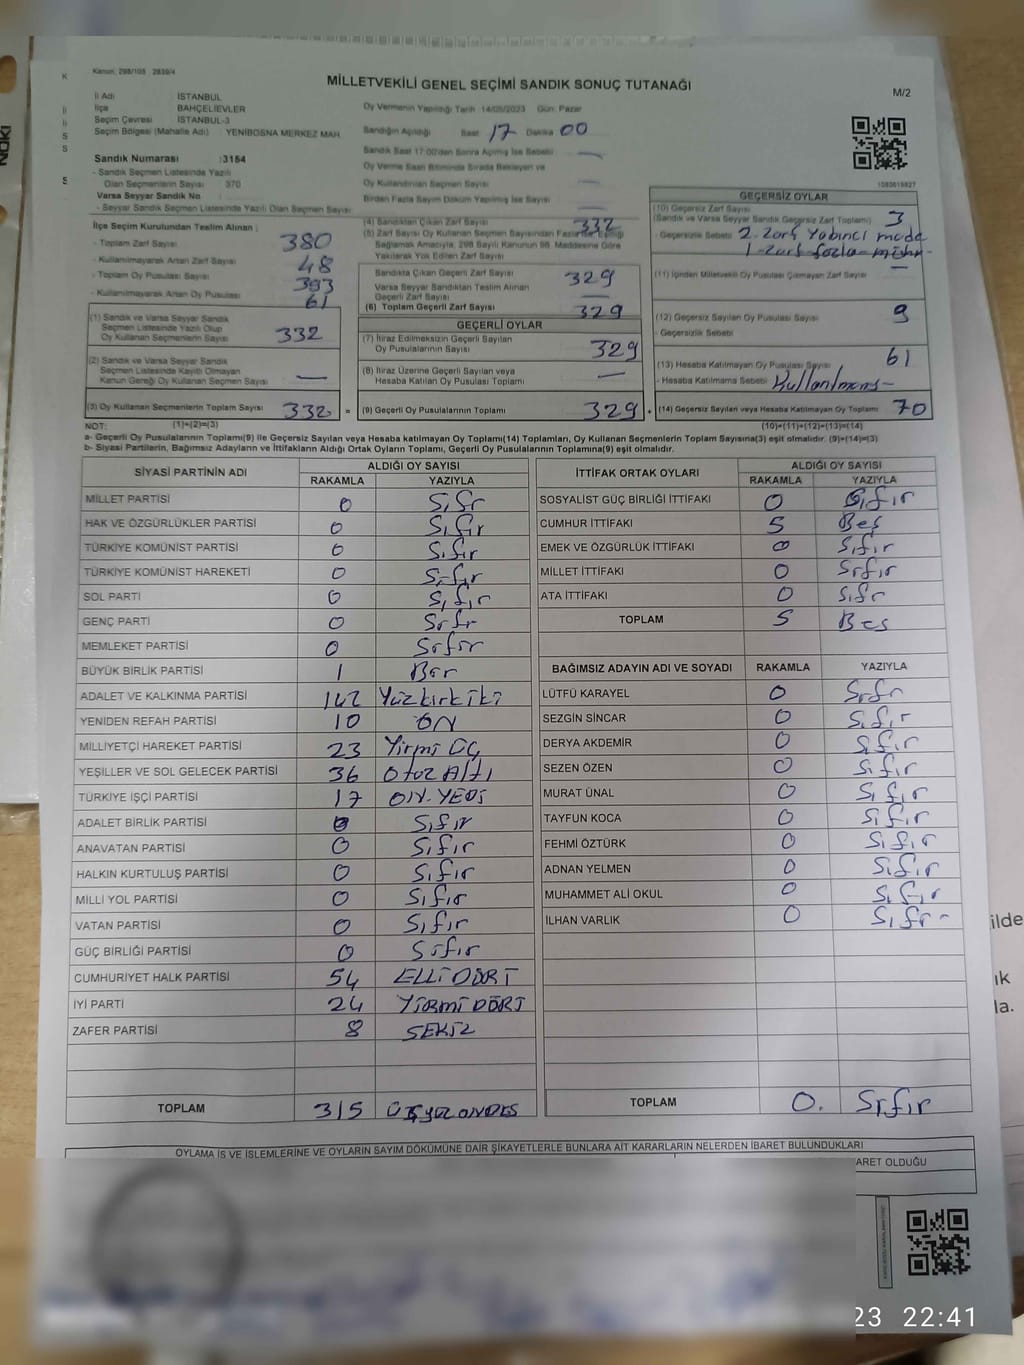 Kanun, 298/105 2839/4
MİLLETVEKİLİ GENEL SEÇİMİ SANDIK SONUÇ TUTANAĞI
M/2
İl Adı İSTANBUL
İlçe BAHÇELİEVLER
Seçim Çevresi İSTANBUL-3
Seçim Bölgesi (Mahalle Adı) YENİBOSNA MERKEZ MAH.
Sandık Numarası :3154
- Sandık Seçmen Listesinde Yazılı
Olan Seçmenlerin Sayısı 370
Varsa Seyyar Sandık No
- Seyyar Sandık Seçmen Listesinde Yazılı Olan Seçmen Sayısı
Oy Vermenin Yapıldığı Tarih 14/05/2023 Gün: Pazar
Sandığın Açıldığı Saat 17 Dakika 00
Sandık Saat 17:00'den Sonra Açılmış İse Sebebi
Oy Verme Saati Bitiminde Sırada Bekleyen ve
Oy Kullandırılan Seçmen Sayısı
Birden Fazla Sayım Döküm Yapılmış İse Sayısı
İlçe Seçim Kurulundan Teslim Alınan :
- Toplam Zarf Sayısı 380
- Kullanılmayarak Artan Zarf Sayısı 48
- Toplam Oy Pusulası Sayısı 393
- Kullanılmayarak Artan Oy Pusulası 61
(1) Sandık ve Varsa Seyyar Sandık
Seçmen Listesinde Yazılı Olup
Oy Kullanan Seçmenlerin Sayısı 332
(2) Sandık ve Varsa Seyyar Sandık
Seçmen Listesinde Kayıtlı Olmayan
Kanun Gereği Oy Kullanan Seçmen Sayısı —
(3) Oy Kullanan Seçmenlerin Toplam Sayısı 332 =
(1)+(2)=(3)
(4) Sandıktan Çıkan Zarf Sayısı 332
(5) Zarf Sayısı Oy Kullanan Seçmen Sayısından Fazla İse, Eşitliği
Sağlamak Amacıyla, 298 Sayılı Kanunun 98. Maddesine Göre
Yakılarak Yok Edilen Zarf Sayısı
Sandıkta Çıkan Geçerli Zarf Sayısı 329
Varsa Seyyar Sandıktan Teslim Alınan
Geçerli Zarf Sayısı —
(6) Toplam Geçerli Zarf Sayısı 329
GEÇERLİ OYLAR
(7) İtiraz Edilmeksizin Geçerli Sayılan
Oy Pusulalarının Sayısı 329
(8) İtiraz Üzerine Geçerli Sayılan veya
Hesaba Katılan Oy Pusulası Toplamı —
(9) Geçerli Oy Pusulalarının Toplamı 329 +
1083616827
GEÇERSİZ OYLAR
(10) Geçersiz Zarf Sayısı
(Sandık ve Varsa Seyyar Sandık Geçersiz Zarf Toplamı) 3
- Geçersizlik Sebebi 2. Zarf Yabancı madde
1. Zarf fazla mühür
(11) İçinden Milletvekili Oy Pusulası Çıkmayan Zarf Sayısı —
(12) Geçersiz Sayılan Oy Pusulası Sayısı 9
- Geçersizlik Sebebi
(13) Hesaba Katılmayan Oy Pusulası Sayısı 61
- Hesaba Katılmama Sebebi
(14) Geçersiz Sayılan veya Hesaba Katılmayan Oy Toplamı 70
(10)+(11)+(12)+(13)=(14)
NOT:
a- Geçerli Oy Pusulalarının Toplamı(9) ile Geçersiz Sayılan veya Hesaba katılmayan Oy Toplamı(14) Toplamları, Oy Kullanan Seçmenlerin Toplam Sayısına(3) eşit olmalıdır. (9)+(14)=(3)
b- Siyasi Partilerin, Bağımsız Adayların ve İttifakların Aldığı Ortak Oyların Toplamı, Geçerli Oy Pusulalarının Toplamına(9) eşit olmalıdır.
SİYASİ PARTİNİN ADI ALDIĞI OY SAYISI
RAKAMLA YAZIYLA
MİLLET PARTİSİ 0 Sıfır
HAK VE ÖZGÜRLÜKLER PARTİSİ 0 Sıfır
TÜRKİYE KOMÜNİST PARTİSİ 0 Sıfır
TÜRKİYE KOMÜNİST HAREKETİ 0 Sıfır
SOL PARTİ 0 Sıfır
GENÇ PARTİ 0 Sıfır
MEMLEKET PARTİSİ 0 Sıfır
BÜYÜK BİRLİK PARTİSİ 1 Bir
ADALET VE KALKINMA PARTİSİ 142 Yüzkırkiki
YENİDEN REFAH PARTİSİ 10 ON
MİLLİYETÇİ HAREKET PARTİSİ 23 Yirmi Üç
YEŞİLLER VE SOL GELECEK PARTİSİ 36 Otuz Altı
TÜRKİYE İŞÇİ PARTİSİ 17 ON-YEDİ
ADALET BİRLİK PARTİSİ 0 Sıfır
ANAVATAN PARTİSİ 0 Sıfır
HALKIN KURTULUŞ PARTİSİ 0 Sıfır
MİLLİ YOL PARTİSİ 0 Sıfır
VATAN PARTİSİ 0 Sıfır
GÜÇ BİRLİĞİ PARTİSİ 0 Sıfır
CUMHURİYET HALK PARTİSİ 54 ELLİ DÖRT
İYİ PARTİ 24 YİRMİ DÖRT
ZAFER PARTİSİ 8 SEKİZ
TOPLAM 315 ÜÇYÜZ ONBEŞ
İTTİFAK ORTAK OYLARI ALDIĞI OY SAYISI
RAKAMLA YAZIYLA
SOSYALİST GÜÇ BİRLİĞİ İTTİFAKI 0 Sıfır
CUMHUR İTTİFAKI 5 Beş
EMEK VE ÖZGÜRLÜK İTTİFAKI 0 Sıfır
MİLLET İTTİFAKI 0 Sıfır
ATA İTTİFAKI 0 Sıfır
TOPLAM 5 Beş
BAĞIMSIZ ADAYIN ADI VE SOYADI RAKAMLA YAZIYLA
LÜTFÜ KARAYEL 0 Sıfır
SEZGİN SİNCAR 0 Sıfır
DERYA AKDEMİR 0 Sıfır
SEZEN ÖZEN 0 Sıfır
MURAT ÜNAL 0 Sıfır
TAYFUN KOCA 0 Sıfır
FEHMİ ÖZTÜRK 0 Sıfır
ADNAN YELMEN 0 Sıfır
MUHAMMET ALİ OKUL 0 Sıfır
İLHAN VARLIK 0 Sıfır
TOPLAM 0. Sıfır
OYLAMA İŞ VE İŞLEMLERİNE VE OYLARIN SAYIM DÖKÜMÜNE DAİR ŞİKAYETLERLE BUNLARA AİT KARARLARIN NELERDEN İBARET BULUNDUKLARI
ARET OLDUĞU
ilde
ık
la.
23 22:41